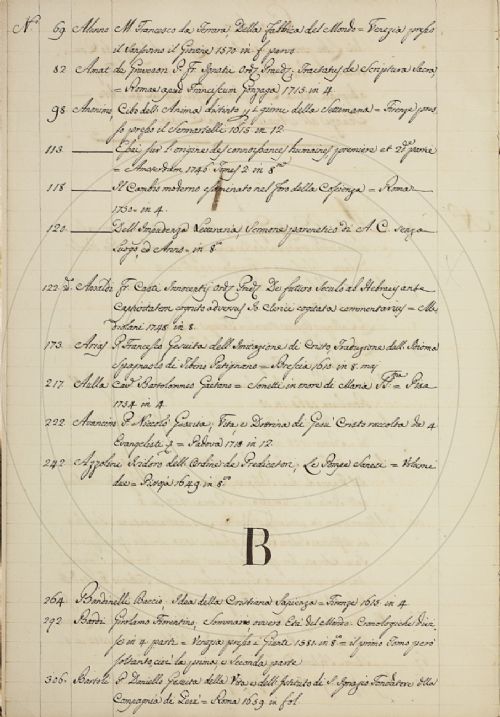 N.º 69. Alunno M. Francesco da Ferrara Della Fabbrica del Mondo = Venezia presso
il Sansovino il Giovine 1570 in f. parvo
82. Amat de Graveson P. Fr. Ignatii Ord. Praed. Tractatus de Scriptura Sacra
= Romae apud Franciscum Gonzaga 1715 in 4.
98. Anonimo, Cibo dell'Anima per tutti i giorni della Settimana = Firenze
presso il Sermartelli 1615 in 12
113. ——— Essai sur l'origine des connoissances humaines premiere et 2.de partie
= Amsterdam 1746 Tomes 2 in 8.vo
118. ——— Il Cambio moderno esaminato nel foro della Coscienza = Roma
1750. in 4.
120. ——— Dell'Impudenza Letteraria, Sermone parenetico di A. C. senza
Luogo, ed Anno = in 8.o
122. Ansaldi Fr. Casti Innocentis Ord. Praed. De futuro Seculo ab Hebraeis ante
Captivitatem cognito adversus Jo. Clerici cogitata commentarius =
Mediolani 1748 in 8.
173. Arias P. Francesco Gesuita dell'Imitazione di Cristo, Traduzione dall'Idioma
Spagnuolo di Tiberio Putignano = Brescia 1610 in 8. maj
217. Aulla Cav.e Bartolommeo Gaetano = Sonetti in onore di Maria SS.ma = Pisa
1734 in 4
222. Avancino P. Niccolò Gesuita, Vita e Dottrina di Gesù Cristo raccolta da 4
Evangelisti = Padova 1718 in 12
242. Azzolini Isidoro dell'Ordine de Predicatori, Le Pompe Sanesi = Volumi
due = Pistoja 1649 in 8.vo
B
264. Bandinelli Baccio, Idea della Cristiana Sapienza = Firenze 1615 in 4
292. Bardi Girolamo Fiorentino, Sommario ovvero Età del Mondo Cronologiche Divise
in 4 parti = Venezia presso i Giunti 1581. in 8.o = il primo Tomo però
soltanto, cioè la prima, e Seconda parte
306. Bartoli P. Daniello Gesuita della Vita e dell'Istituto di S. Ignazio Fondatore della
Compagnia di Gesù = Roma 1659 in fol.